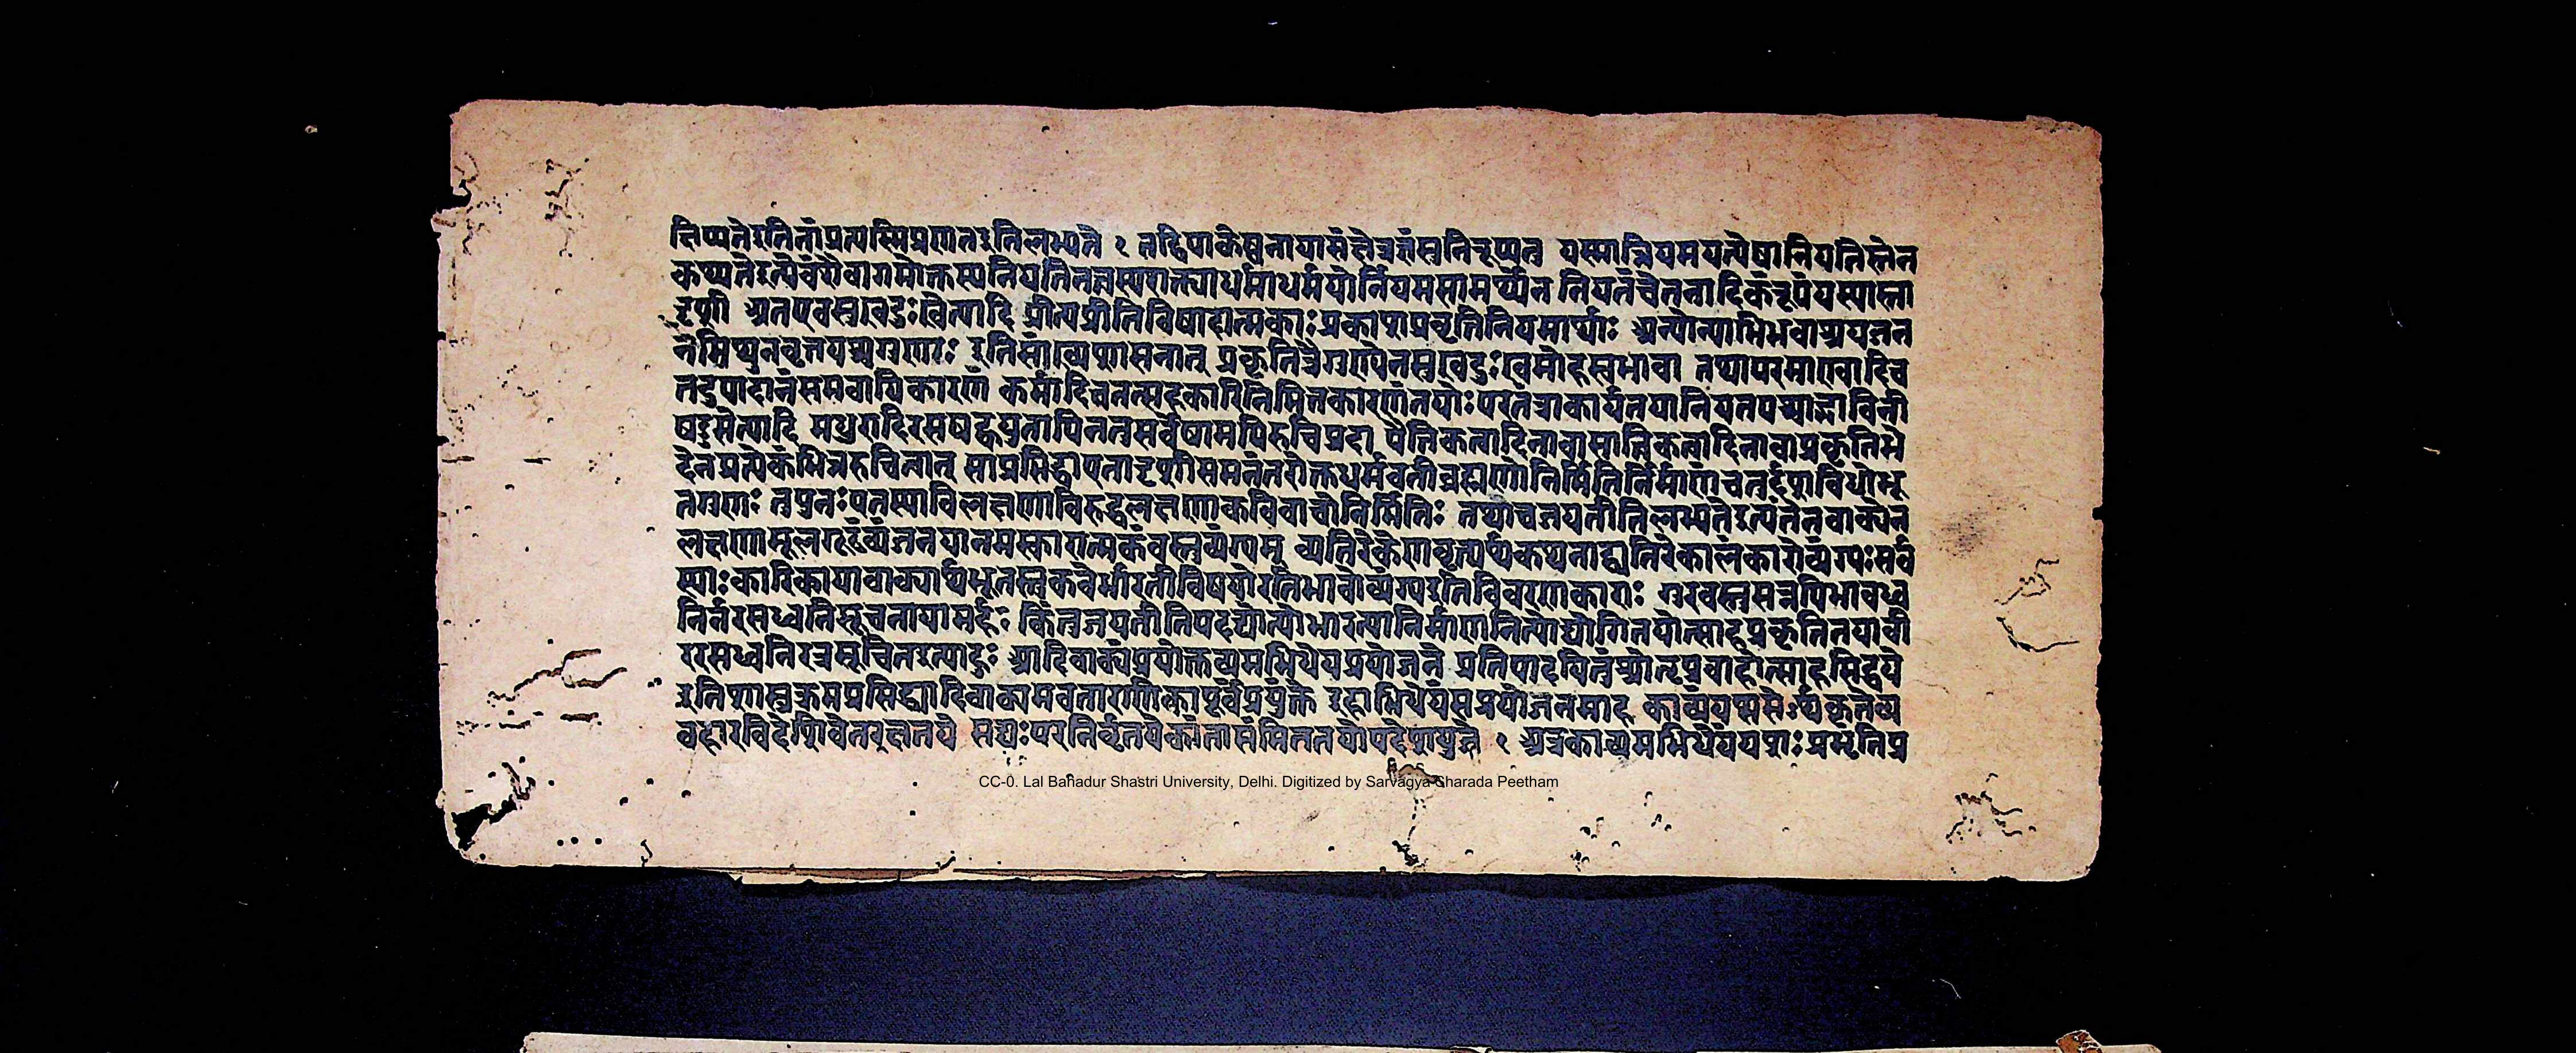 क्षिप्यतेइतितांप्रत्यस्मिप्रणतइतिलभ्यते १ यस्मान्नियमयत्येषानियतिस्तेन
कथ्यतेइत्येवंशैवागमोक्तस्यनियतितत्त्वस्यशक्त्याधर्माधर्मयोर्नियमसामर्थ्येन नियतंचेतनादिकंरूपंयस्यास्ता
दृशी अतएवसुखदुःखेत्यादि प्रीत्यप्रीतिविषादात्मकाः प्रकाशप्रवृत्तिनियमार्थाः अन्योन्याभिभवाश्रयजन
नमिथुनवृत्तयश्चगुणाः इतिसांख्यशासनात् प्रकृतिस्त्रैगुण्येनसुखदुःखमोहस्वभावा तथापरमाण्वादिच
तदुपादानंसमवायिकारणं कर्मादिचतत्सहकारिनिमित्तकारणंतयोः परतंत्राकार्यतयानियतपश्चाद्भाविनी
षड्रसेत्यादि मधुरादिरसषट्कयुतापिनतुसर्वेषामपिरुचिप्रदा पैत्तिकत्वादिनावासात्त्विकत्वादिनावाप्रकृतिभे
देनप्रत्येकंभिन्नरुचित्वात् साप्रसिद्धाएतादृशीसमनंतरोक्तधर्मवतीब्रह्मणोनिर्मितिर्निर्माणंचतुर्दशविधोभू
तगुणः तुपुनः एतस्याविलक्षणाविरुद्धलक्षणाकविवाचोनिर्मितिः तथाचजयतीतिलभ्यतेइत्यंतेनवाक्येन
लक्षणामूलगूढंव्यंजनयानमस्कारात्मकंवस्तुव्यंग्यम् व्यतिरेकेणवृत्त्यर्थकथनाद्व्यतिरेकालंकारोव्यंग्यः सर्व
स्याः कारिकायावाक्यार्थभूतस्तुकवेर्भारतीविषयोरतिभावोव्यंग्यइतिविवरणकाराः गुरवस्तुसन्नपिभावध्व
निर्नरसध्वनिसूचनायामर्हः किंतुजयतीतिपदद्योत्योभारत्यानिर्माणनित्योद्योगितयोत्साहप्रकृतितयावी
ररसध्वनिरत्रसूचितइत्याहुः आदिवाक्यंप्रयोक्तव्यमभिधेयप्रयोजने प्रतिपादयितुंश्रोतृप्रवाहोत्साहसिद्धये
इतिशास्त्रक्रमप्रसिद्ध्यादिवाक्यमवतारणिकापूर्वंप्रयुंक्ते इहाभिधेयंसप्रयोजनमाह काव्यंयशसेऽर्थकृतेव्य
वहारविदेशिवेतरक्षतये सद्यः परनिर्वृतयेकांतासंमिततयोपदेशयुजे १ अत्रकाव्यमभिधेयंयशः प्रभृतिप्र
CC-0. Lal Bahadur Shastri University, Delhi. Digitized by Sarvagya Sharada Peetham